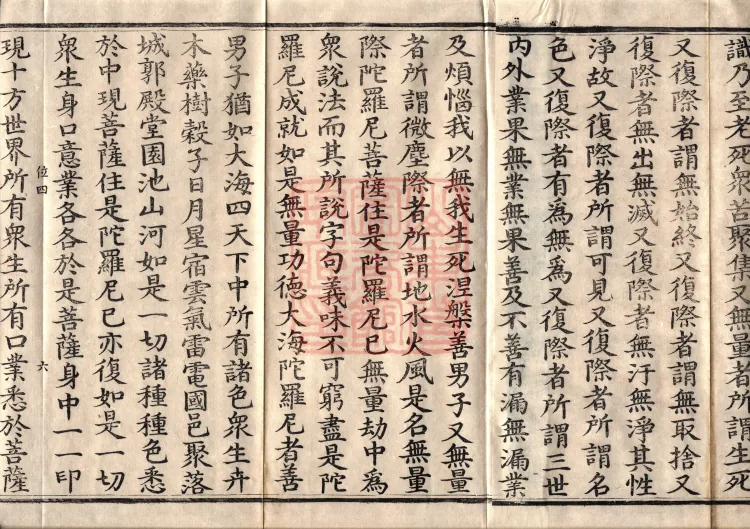 識乃至老死衆苦聚集又無量者所謂生死
又復際者謂無始終又復際者謂無取捨又
復際者無出無滅又復際者無汙無淨其性
淨故又復際者所謂可見又復際者所謂名
色又復際者有爲無爲又復際者所謂三世
內外業果無業無果善及不善有漏無漏業
及煩惱我以無我生死涅槃善男子又無量
者所謂微塵際者所謂地水火風是名無量
際陀羅尼菩薩住是陀羅尼已無量劫中爲
衆說法而其所說字句義味不可窮盡是陀
羅尼成就如是無量功德大海陀羅尼者善
男子猶如大海四天下中所有諸色衆生卉
木藥樹穀子日月星宿雲氣雷電國邑聚落
城郭殿堂園池山河如是一切諸種種色悉
於中現菩薩住是陀羅尼已亦復如是一切
衆生身口意業各各於是菩薩身中一一印
位四 六
現十方世界所有衆生所有口業悉於菩薩